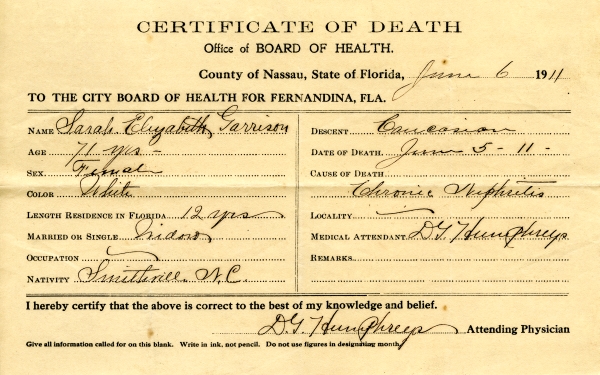 CERTIFICATE OF DEATH
Office of BOARD OF HEALTH.
County of Nassau, State of Florida, June 6 1911
TO THE CITY BOARD OF HEALTH FOR FERNANDINA, FLA.
NAME Sarah Elizabeth Garrison
AGE 71 yrs -
SEX Female
COLOR White
LENGTH RESIDENCE IN FLORIDA 12 yrs
MARRIED OR SINGLE Widow
OCCUPATION
NATIVITY Smithville, N.C.
DESCENT Caucasian
DATE OF DEATH June 5 - 11 -
CAUSE OF DEATH
Chronic Nephritis
LOCALITY
MEDICAL ATTENDANT D.G. Humphreys
REMARKS
I hereby certify that the above is correct to the best of my knowledge and belief.
D.G. Humphreys Attending Physician
Give all information called for on this blank. Write in ink, not pencil. Do not use figures in designating month.